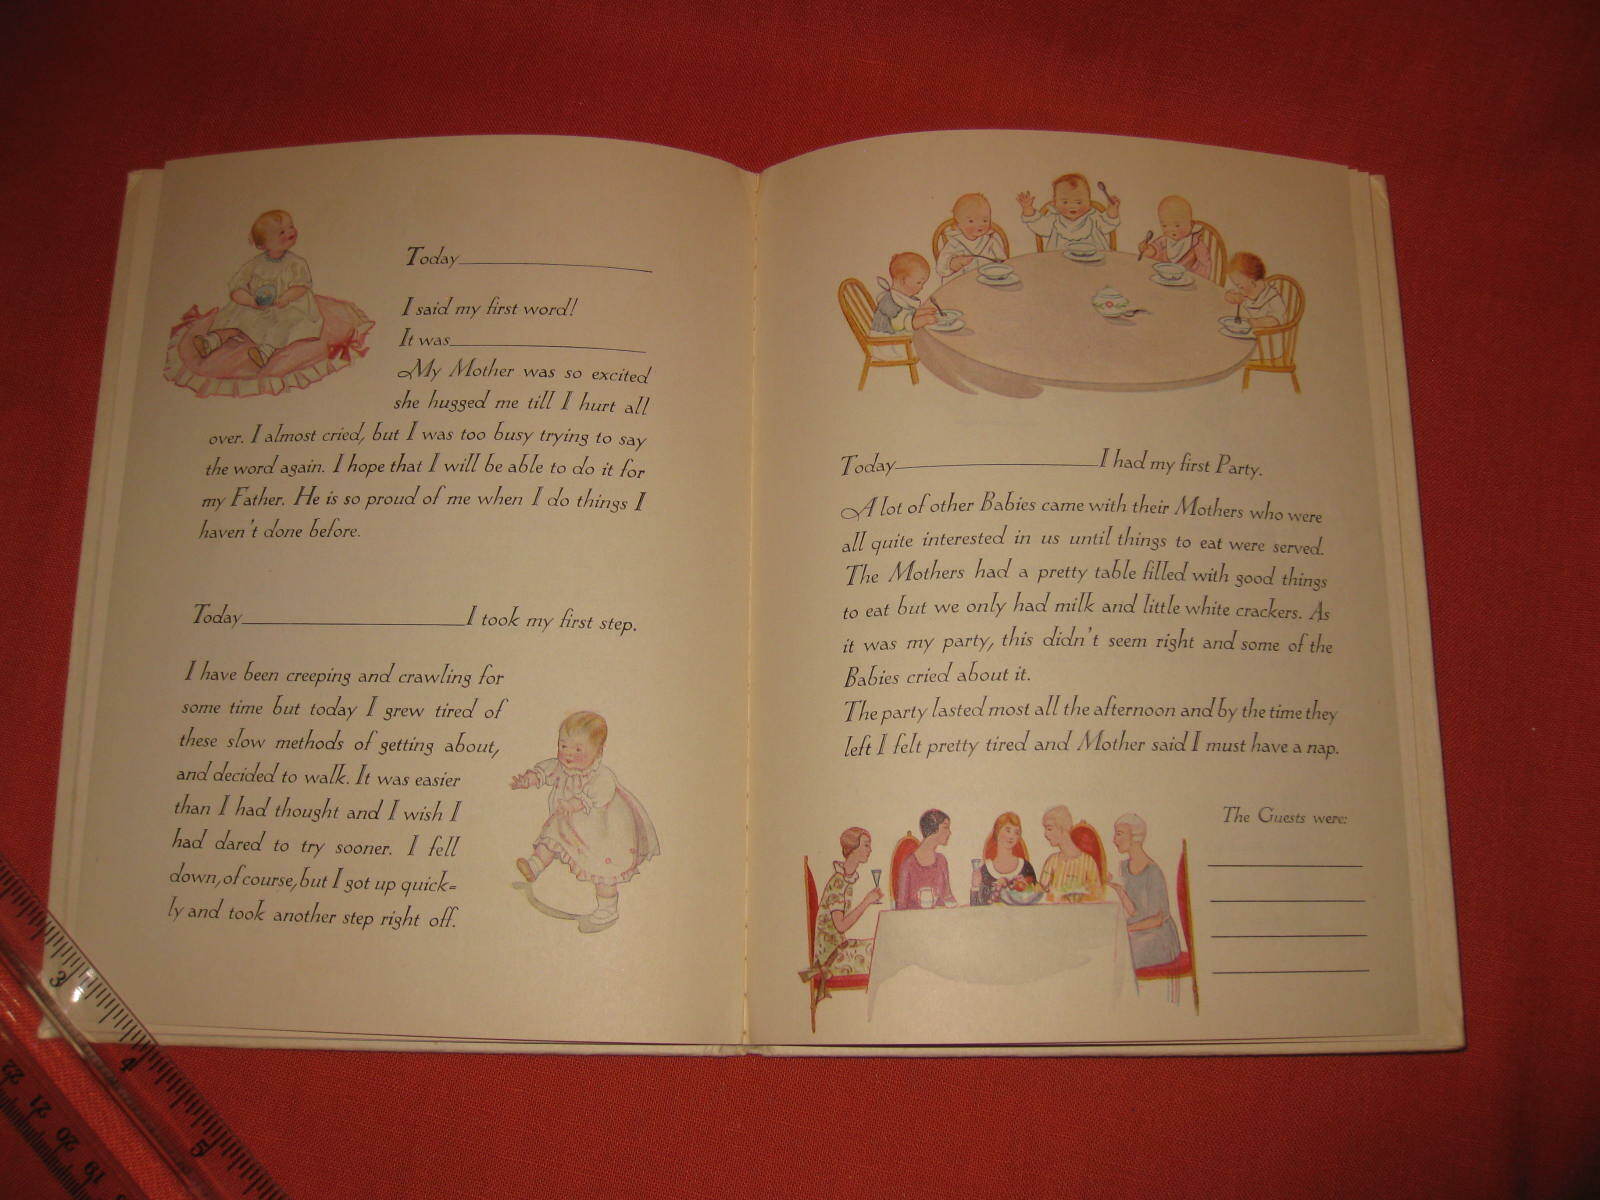 Today
I said my first word!
It was
My Mother was so excited
she hugged me till I hurt all
over. I almost cried, but I was too busy trying to say
the word again. I hope that I will be able to do it for
my Father. He is so proud of me when I do things I
haven't done before.
Today I took my first step.
I have been creeping and crawling for
some time but today I grew tired of
these slow methods of getting about,
and decided to walk. It was easier
than I had thought and I wish I
had dared to try sooner. I fell
down, of course, but I got up quick=
ly and took another step right off.
Today I had my first Party.
A lot of other Babies came with their Mothers who were
all quite interested in us until things to eat were served.
The Mothers had a pretty table filled with good things
to eat but we only had milk and little white crackers. As
it was my party, this didn't seem right and some of the
Babies cried about it.
The party lasted most all the afternoon and by the time they
left I felt pretty tired and Mother said I must have a nap.
The Guests were:
3
4
5
22
21
20
19